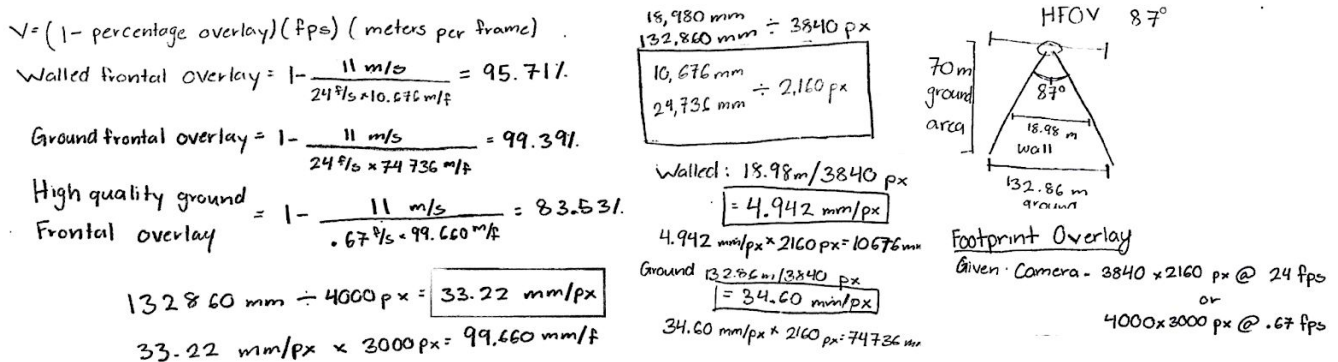 V = (1 - percentage overlay) (fps) (meters per frame).
Walled frontal overlay = 1 - 11 m/s / 24 f/s × 10.676 m/f = 95.71%
Ground frontal overlay = 1 - 11 m/s / 24 f/s × 74 736 m/f = 99.39%
High quality ground
Frontal overlay = 1 - 11 m/s / .67 f/s × 99.660 m/f = 83.53%
132860 mm ÷ 4000 px = 33.22 mm/px
33.22 mm/px × 3000 px = 99,660 mm/f
18,980 mm
132,860 mm ÷ 3840 px
10,676 mm
24,736 mm ÷ 2,160 px
Walled: 18.98m/3840 px
= 4.942 mm/px
4.942 mm/px × 2160 px = 10676 mm
Ground 132.86m/3840 px
= 34.60 mm/px
34.60 mm/px × 2160 px = 74736 mm
HFOV 87°
70m
ground
area
87°
18.98 m
wall
132.86 m
ground
Footprint Overlay
Given: Camera - 3840 × 2160 px @ 24 fps
or
4000 × 3000 px @ .67 fps